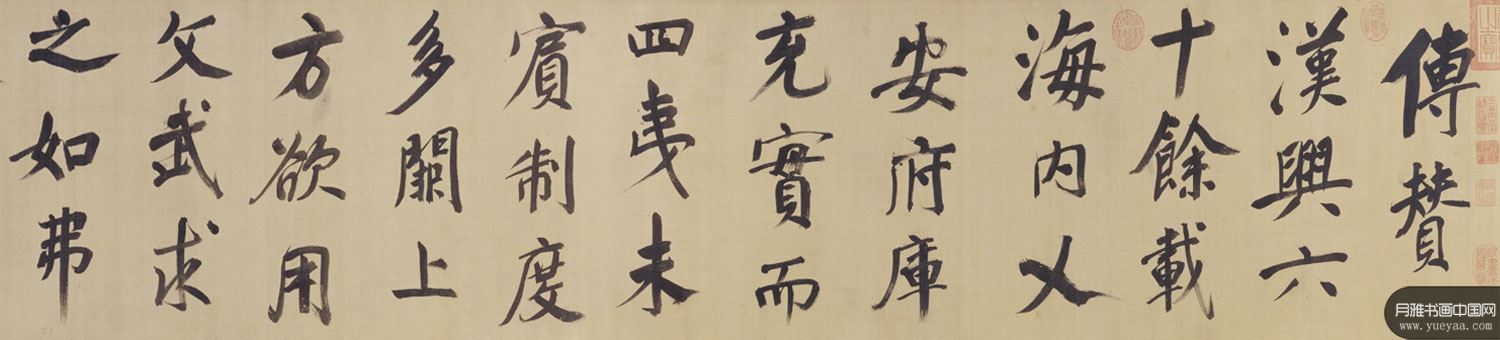 傳贊
漢興六
十餘載
海內乂
安府庫
充實而
四夷未
賓制度
多闕上
方欲用
文武求
之如弗
月雅书画中国网
www.yueyaa.com